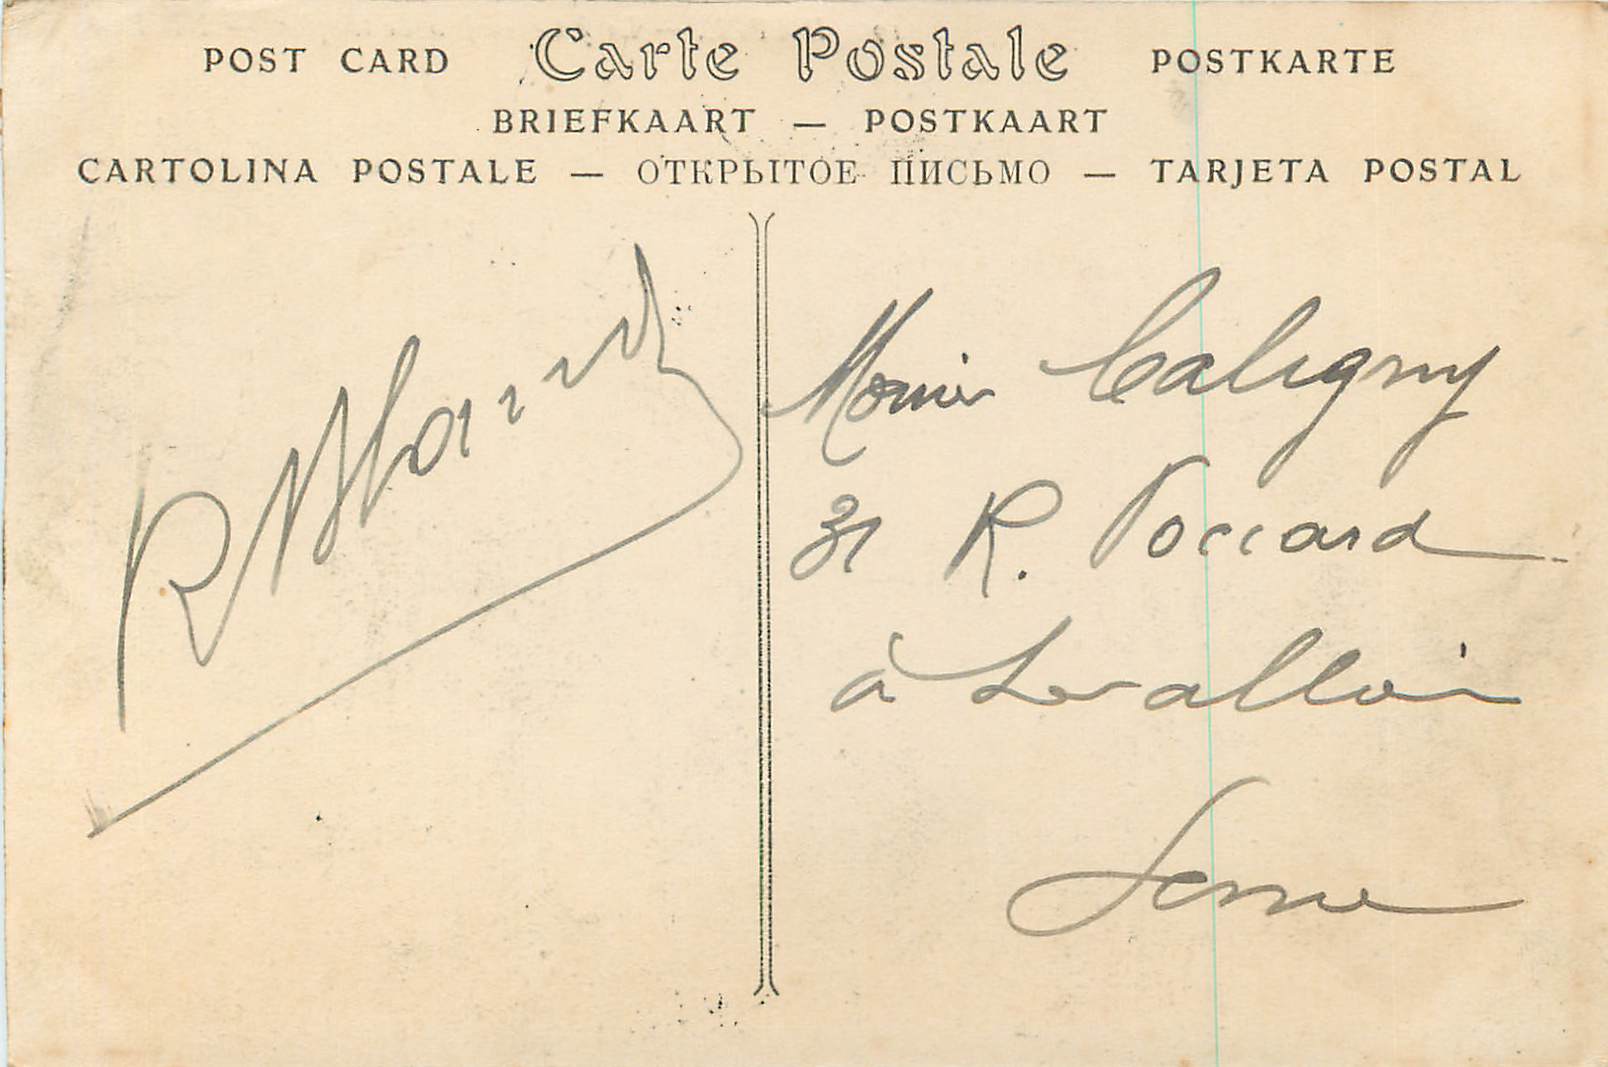 POST CARD Carte Postale POSTKARTE
BRIEFKAART — POSTKAART
CARTOLINA POSTALE — ОТКРЫТОЕ ПИСЬМО — TARJETA POSTAL
Caligny
31 R. Voccard
à Levallois
Seine